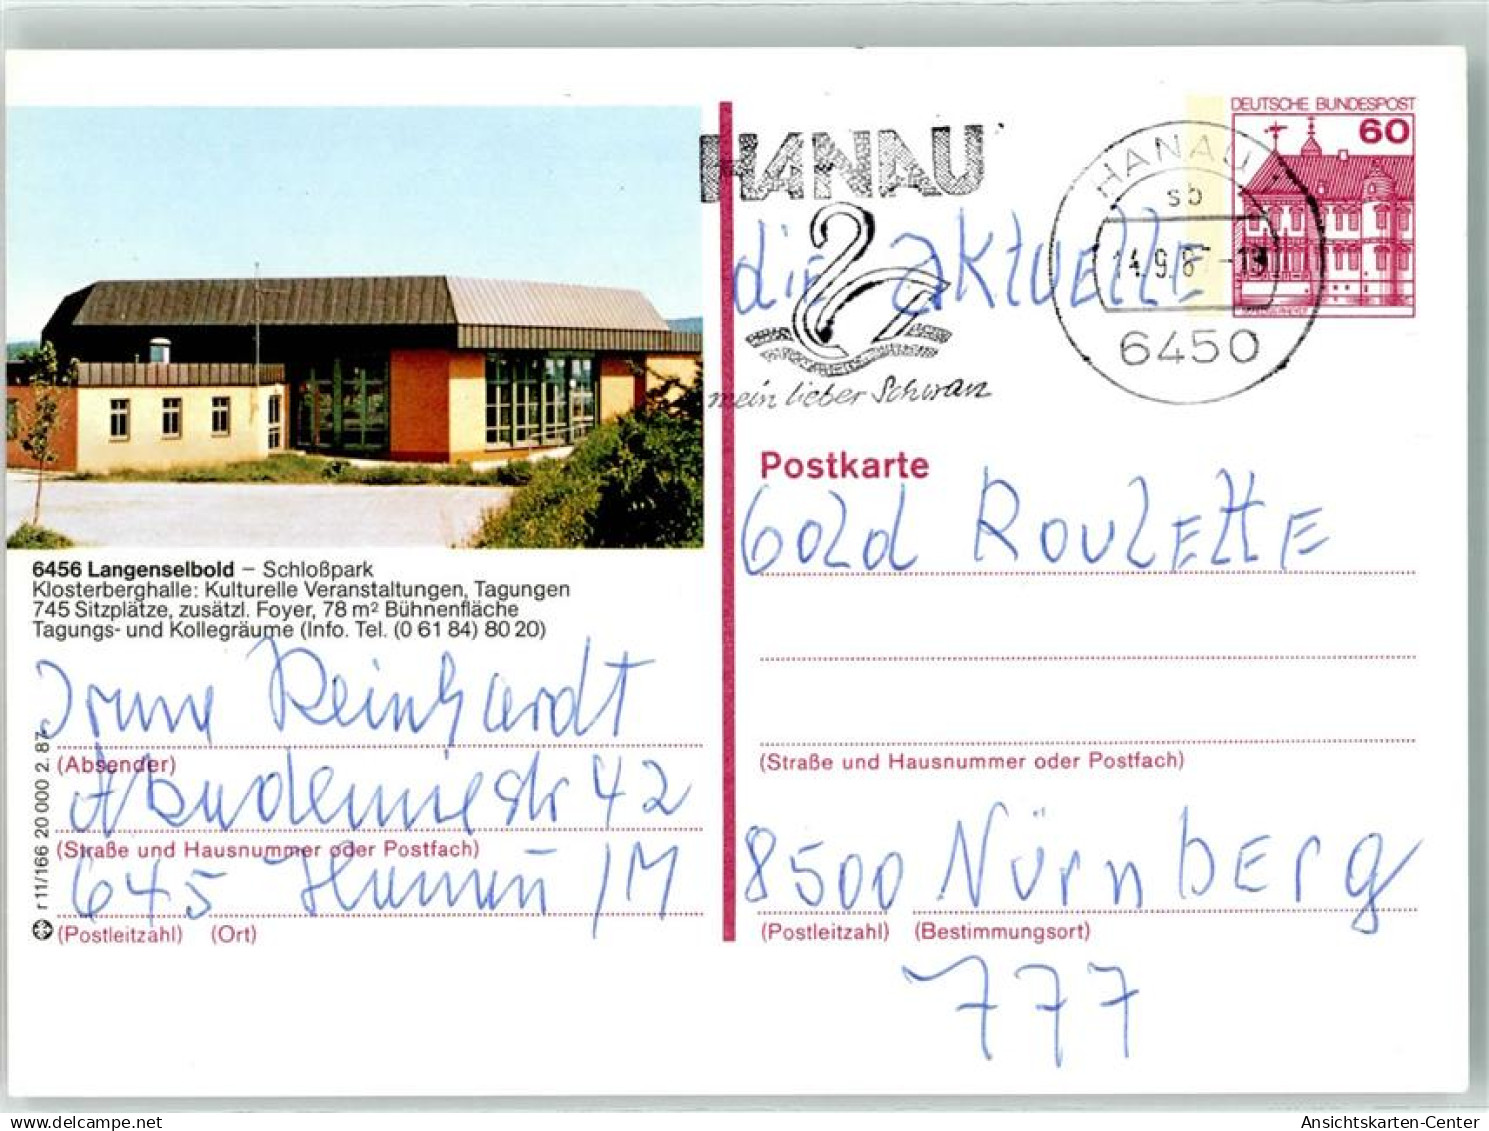 DEUTSCHE BUNDESPOST
60
HANAU
HANAU
sb
14.9.8 -18
6450
die aktuelle
mein lieber Schwan
Postkarte
Gold Roulette
6456 Langenselbold – Schloßpark
Klosterberghalle: Kulturelle Veranstaltungen, Tagungen
745 Sitzplätze, zusätzl. Foyer, 78 m² Bühnenfläche
Tagungs- und Kollegräume (Info. Tel. (0 61 84) 80 20)
Reinhardt
(Absender)
Akademiestr 42
(Straße und Hausnummer oder Postfach)
645 Hanau /M
(Postleitzahl) (Ort)
r 11/166 20 000 2. 87
(Straße und Hausnummer oder Postfach)
8500 Nürnberg
(Postleitzahl) (Bestimmungsort)
777
Ansichtskarten-Center